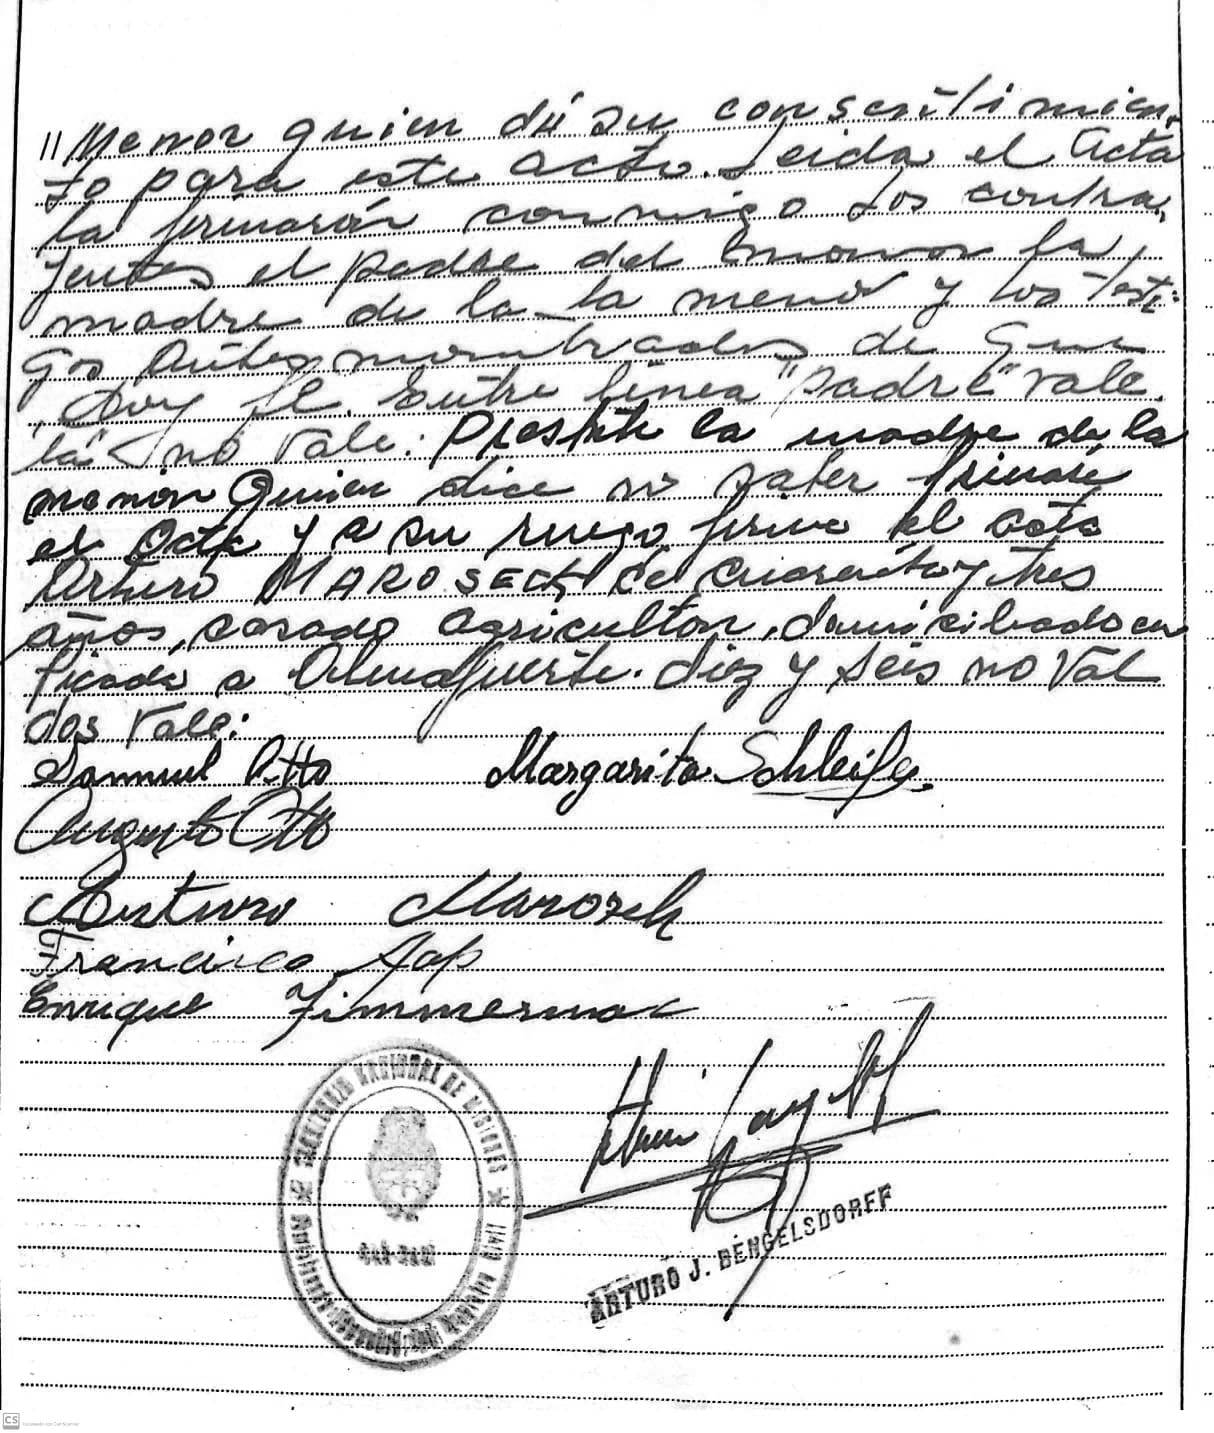 "Menor quien dá su consentimien,
to para este acto. Leida el Acta
la firmarón conmigo los contra,
yentes el padre del menor la
madre de la la menor y los testi-
gos Antes nombrados de que
Doy fé. Entre linea "padre" vale.
"la" no vale: Presente la madre de la
menor Quien dice no saber firmaré
el Acta y a su ruego firma el acta
Arturo MAROSECK de cuarenta y tres
años, casado agricultor, domiciliado en
Picada a Almafuerte. diez y seis no Val
dos Vale:
Samuel Otto Margarita Schleifer.
Augusto Otto
Arturo Marosek
Francisco
Enrique Zimmerman
REGISTRO NACIONAL DE MISIONES
ARTURO J. BENGELSDORFF
CS